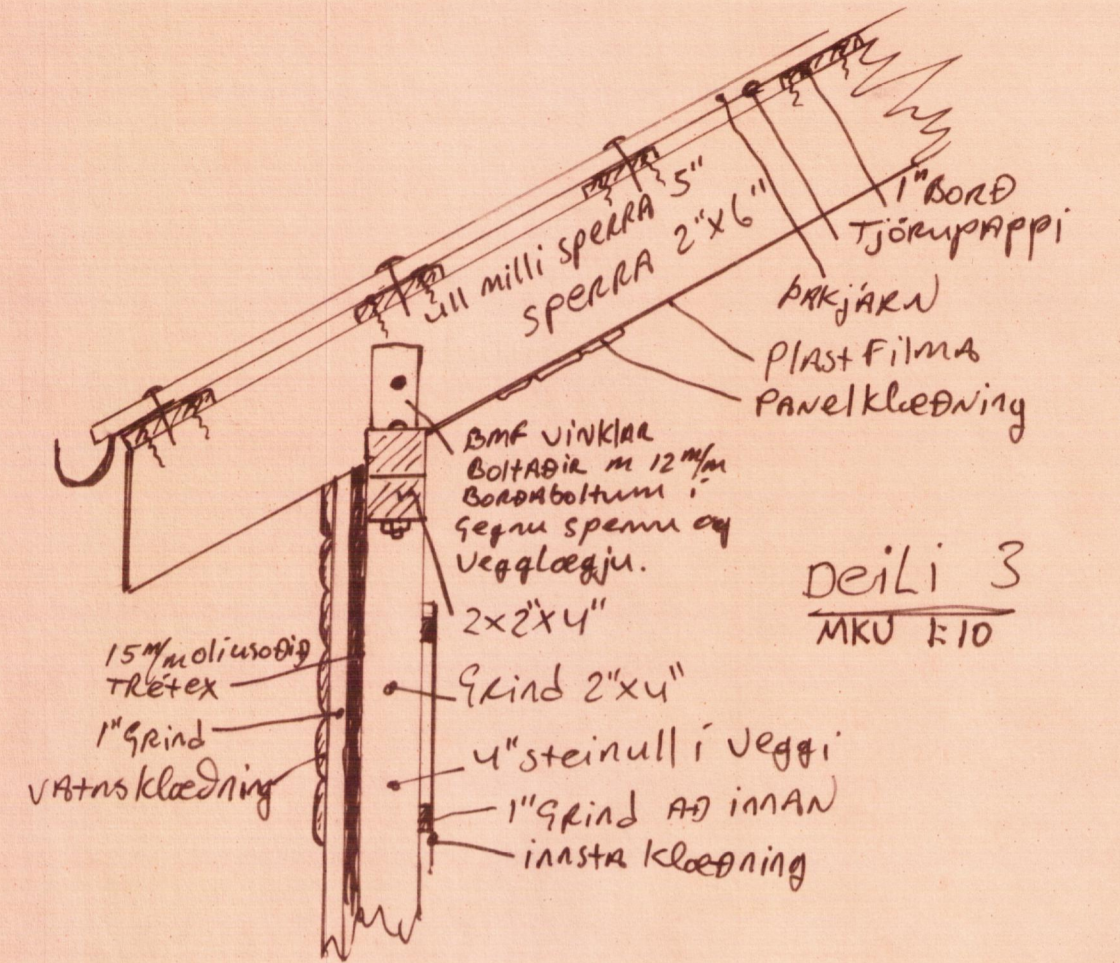 ull milli sperra 5"
sperra 2"x6"
1" Borð
Tjörupappi
Þakjárn
Plast Filma
Panelklæðning
BMF vinklar
Boltaðir m 12 m/m
Borðaboltum í
gegnu sperru og
Vegglægju.
2x2"x4"
Deili 3
MKV 1:10
15 m/m olíusoðið
Trétex
Grind 2"x4"
1" Grind
4" steinull í Veggi
vatnsklæðning
1" Grind að innan
innsta klæðning